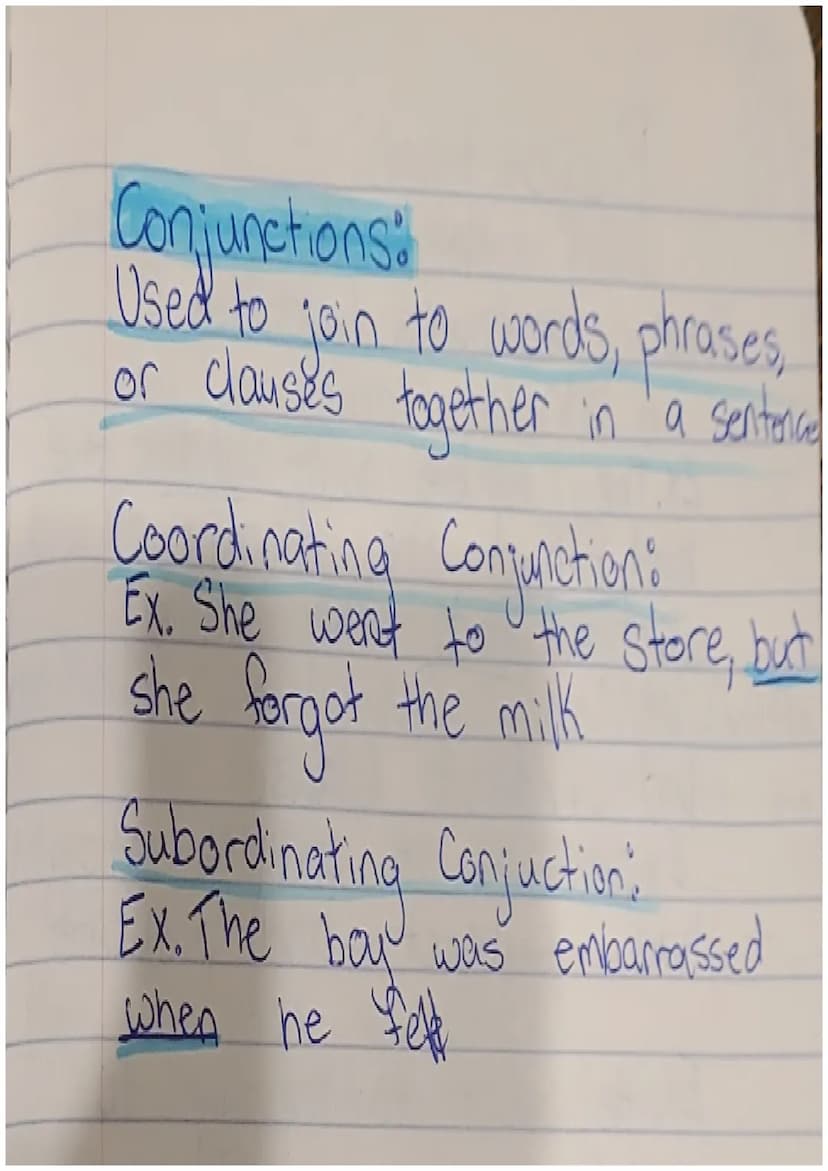 Conjunctions:
Used to join to words, phrases,
or clauses together in a sentence
Coordinating Conjunction:
Ex. She went to the store, but
she forgot the milk
Subordinating Conjuction:
Ex. The boy was embarrassed
when he fell